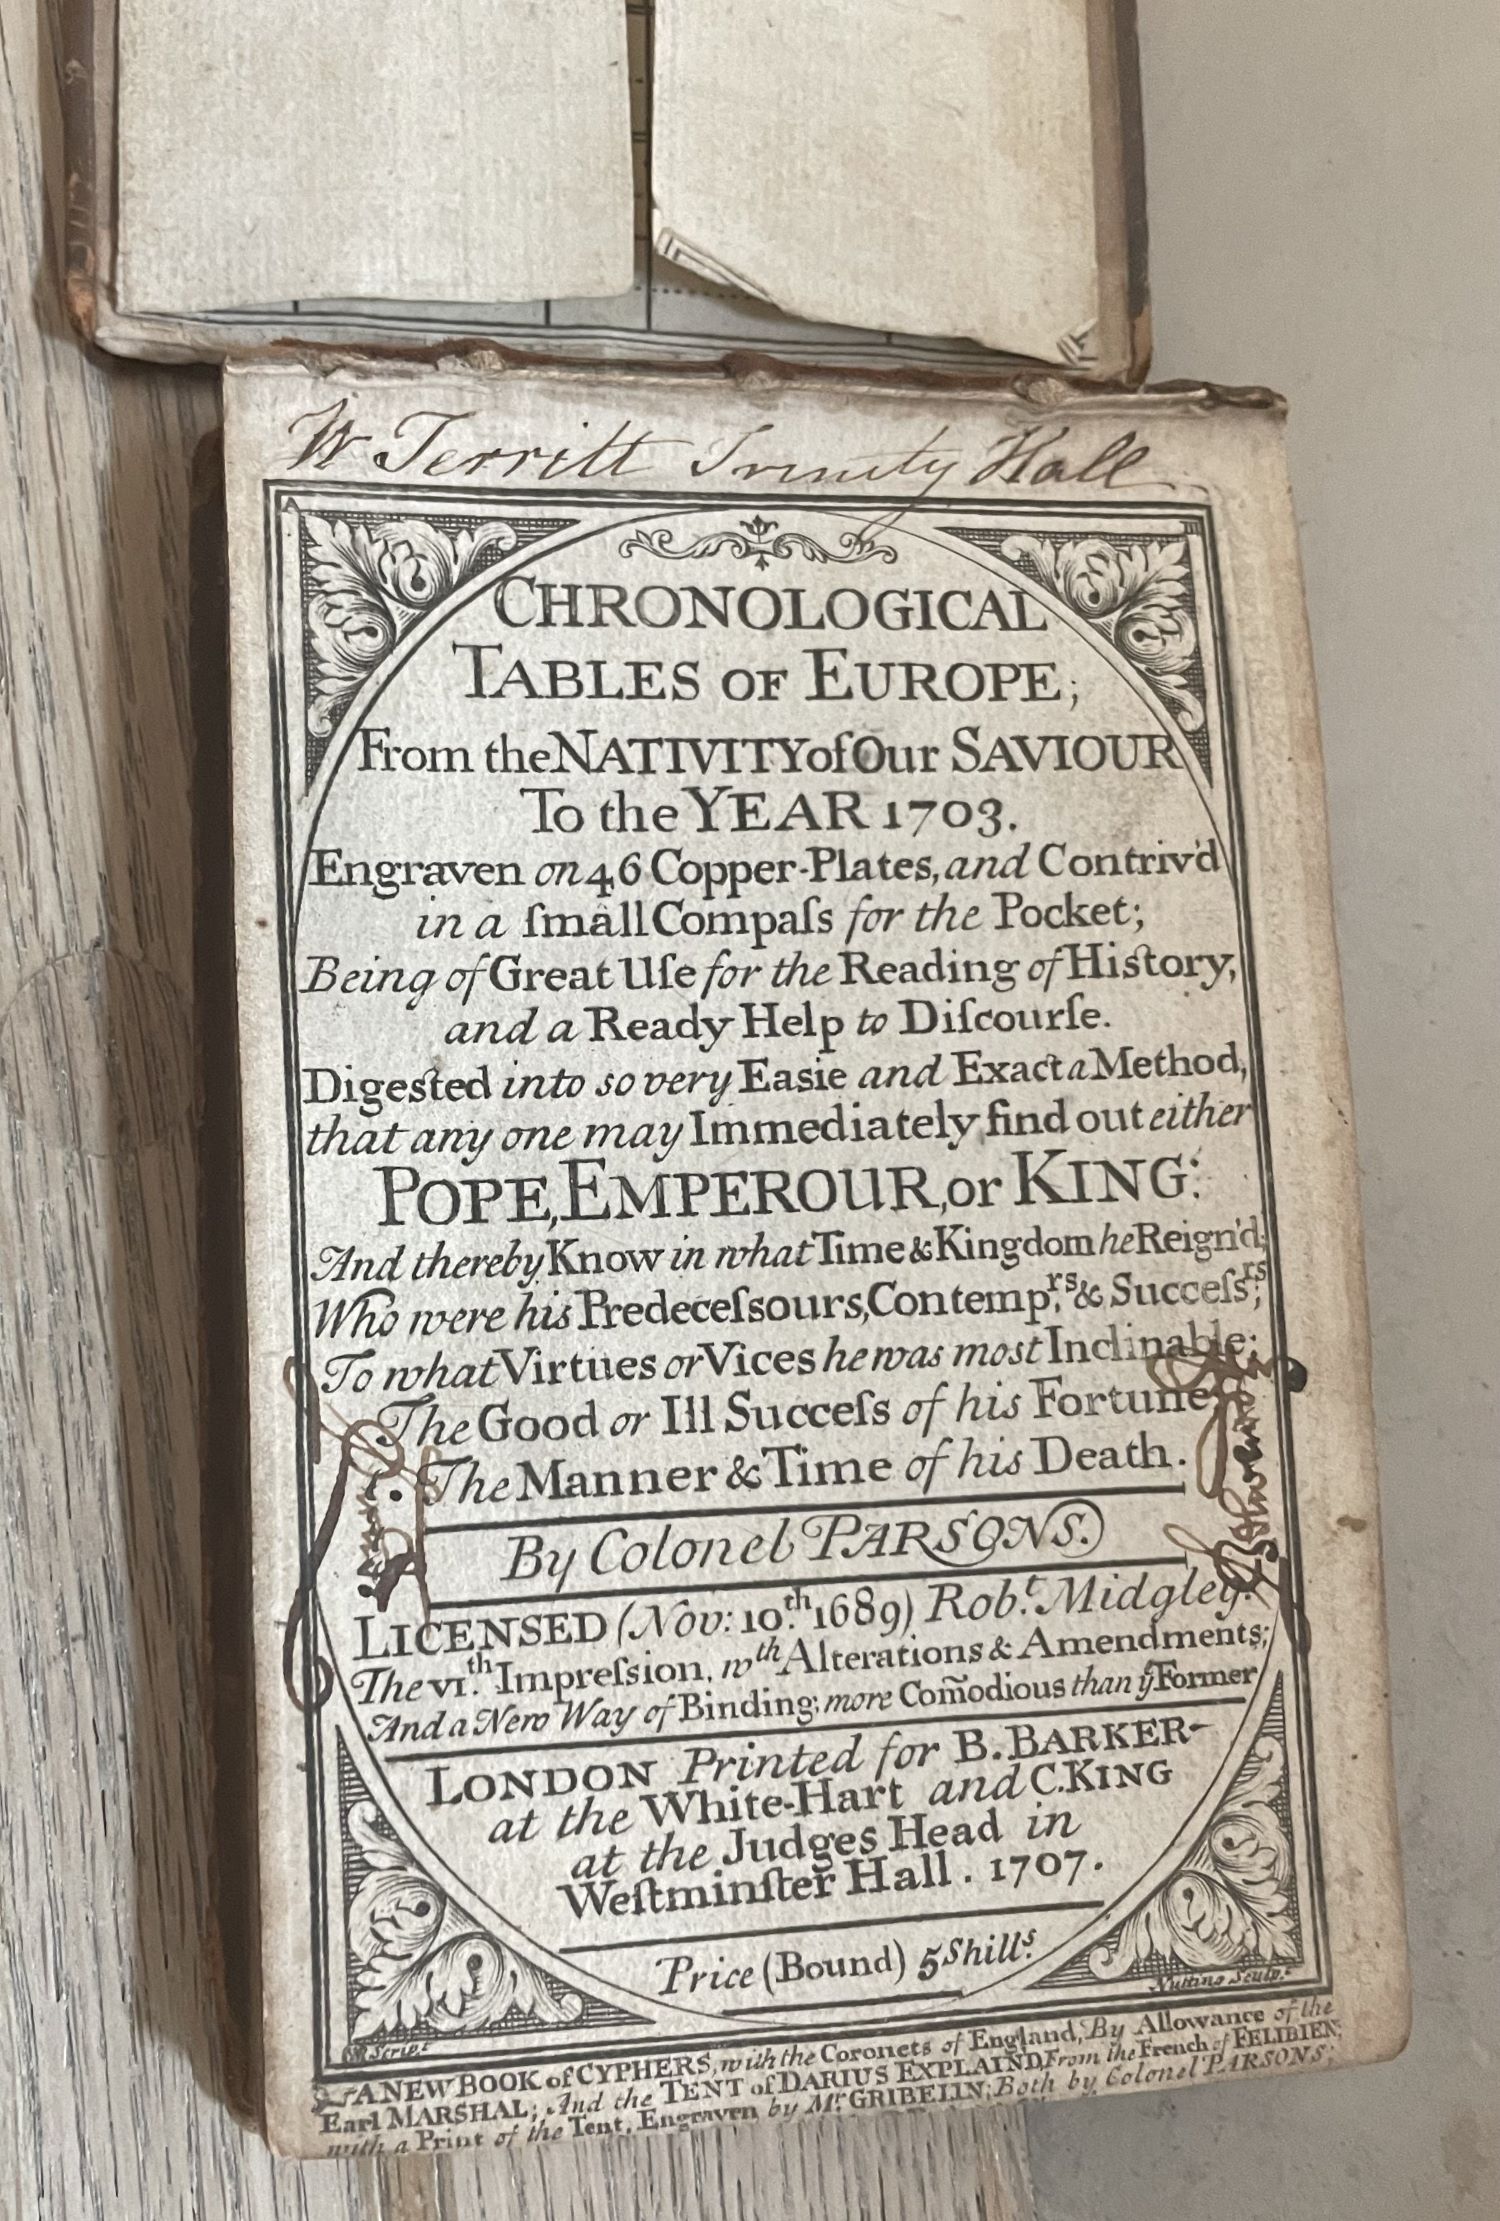 W Territt Trinity Hall
CHRONOLOGICAL
TABLES OF EUROPE;
From the NATIVITY of Our SAVIOUR
To the YEAR 1703.
Engraven on 46 Copper-Plates, and Contriv'd
in a ſmall Compaſs for the Pocket;
Being of Great Uſe for the Reading of Hiſtory,
and a Ready Help to Diſcourſe.
Digested into so very Easie and Exact a Method,
that any one may Immediately find out either
POPE, EMPEROUR, or KING:
And thereby Know in what Time & Kingdom he Reign'd;
Who were his Predeceſsours, Contemp.rs & Succeſs.rs;
To what Virtues or Vices he was most Inclinable;
The Good or Ill Succeſs of his Fortune
The Manner & Time of his Death.
By Colonel PARSONS.
LICENSED (Nov: 10.th 1689) Rob.t Midgley.
The VI.th Impreſsion, wth Alterations & Amendments;
And a New Way of Binding; more Com̃odious than ẙ Former
LONDON Printed for B. BARKER
at the White-Hart and C. KING
at the Judges Head in
Weſtminſter Hall. 1707.
Price (Bound) 5 Shill.s
Nutting Sculp.t
Script
A NEW BOOK of CYPHERS, with the Coronets of England, By Allowance of the
Earl MARSHAL; And the TENT of DARIUS EXPLAIND, From the French of FELIBIEN;
with a Print of the Tent, Engraven by Mr. GRIBELIN; Both by Colonel PARSONS;